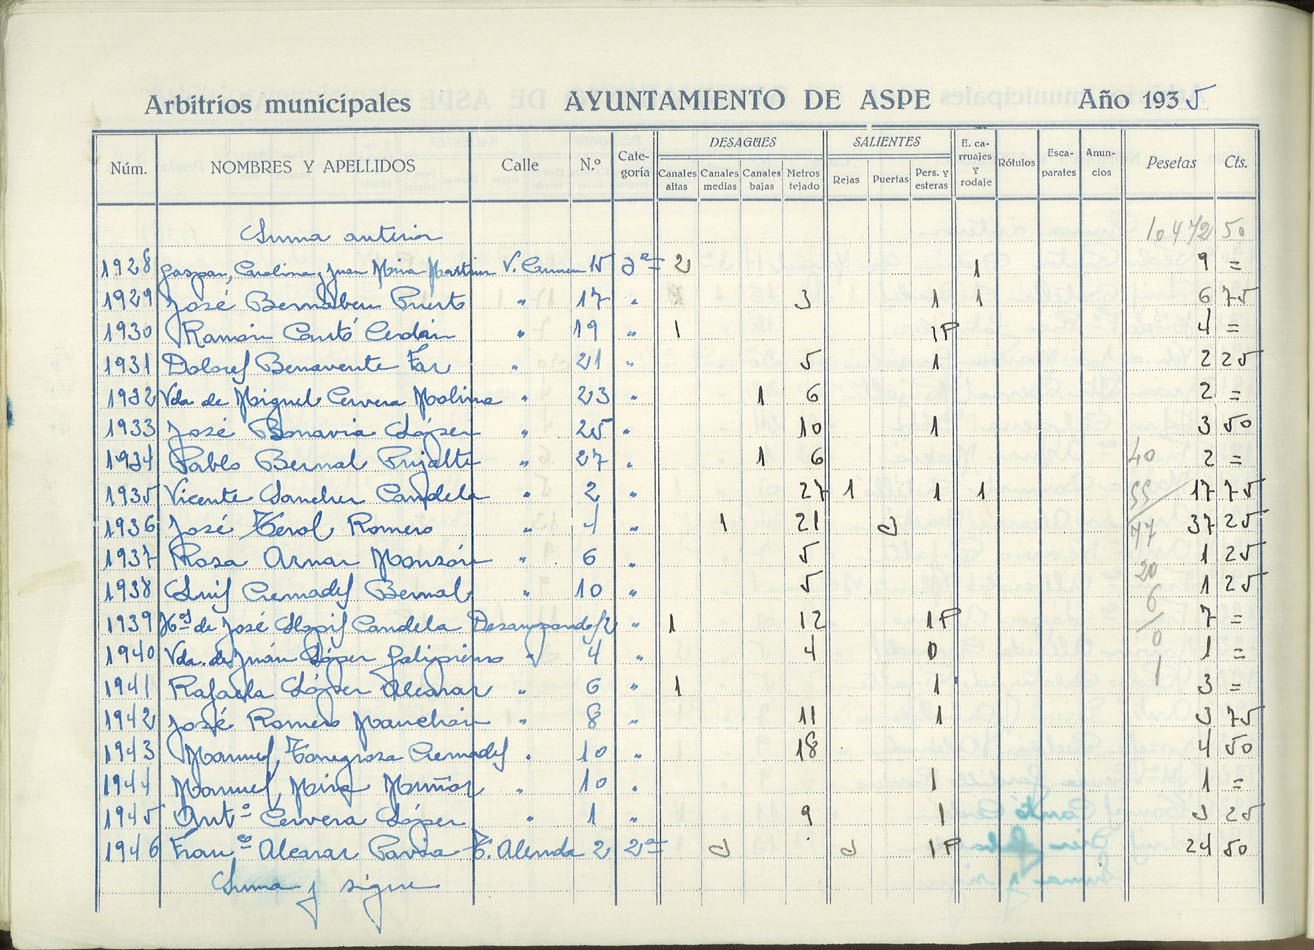 Arbitrios municipales AYUNTAMIENTO DE ASPE Año 1935
Núm. NOMBRES Y APELLIDOS Calle N.º Cate-goría DESAGÜES Canales altas Canales medias Canales bajas Metros tejado SALIENTES Rejas Puertas Pers. y esteras E. ca-rruajes y rodaje Rótulos Esca-parates Anun-cios Pesetas Cts.
Suma anterior 10472 50
1928 Gaspar, Carolina y Juan Mira Martinez V. Carmen 15 3ª= 2 1 9 =
1929 José Bernabeu Puerto " 17 " 3 1 1 6 75
1930 Ramón Cantó Cerdán " 19 " 1 1P 4 =
1931 Dolores Benavente Far " 21 " 5 1 2 25
1932 Vda de Miguel Cervera Molina " 23 " 1 6 2 =
1933 José Bonavia López " 25 " 10 1 3 50
1934 Pablo Bernal Pujalte " 27 " 1 6 40 2 =
1935 Vicente Sanchez Candela " 2 " 27 1 1 1 55 17 75
1936 José Terol Romero " 4 " 1 21 77 37 25
1937 Rosa Arnar Monzón " 6 " 5 1 25
1938 Luis Cremades Bernal " 10 " 5 20 1 25
1939 Hos de José Llopis Candela 2 " 1 12 1P 6 7 =
1940 Vda. de Juán López Galipienso " 4 " 4 0 0 1 =
1941 Rafaela López Alcaraz " 6 " 1 1 1 3 =
1942 José Romero Manchón " 8 " 11 1 3 75
1943 Manuel Torregrosa Cremades " 10 " 18 4 50
1944 Manuel Mira Muñoz " 10 " 1 1 =
1945 Antº Cervera López " 1 " 9 1 3 25
1946 Franco Alcaraz Pavia T. Alenda 2 2ª= 1P 24 50
Suma y sigue